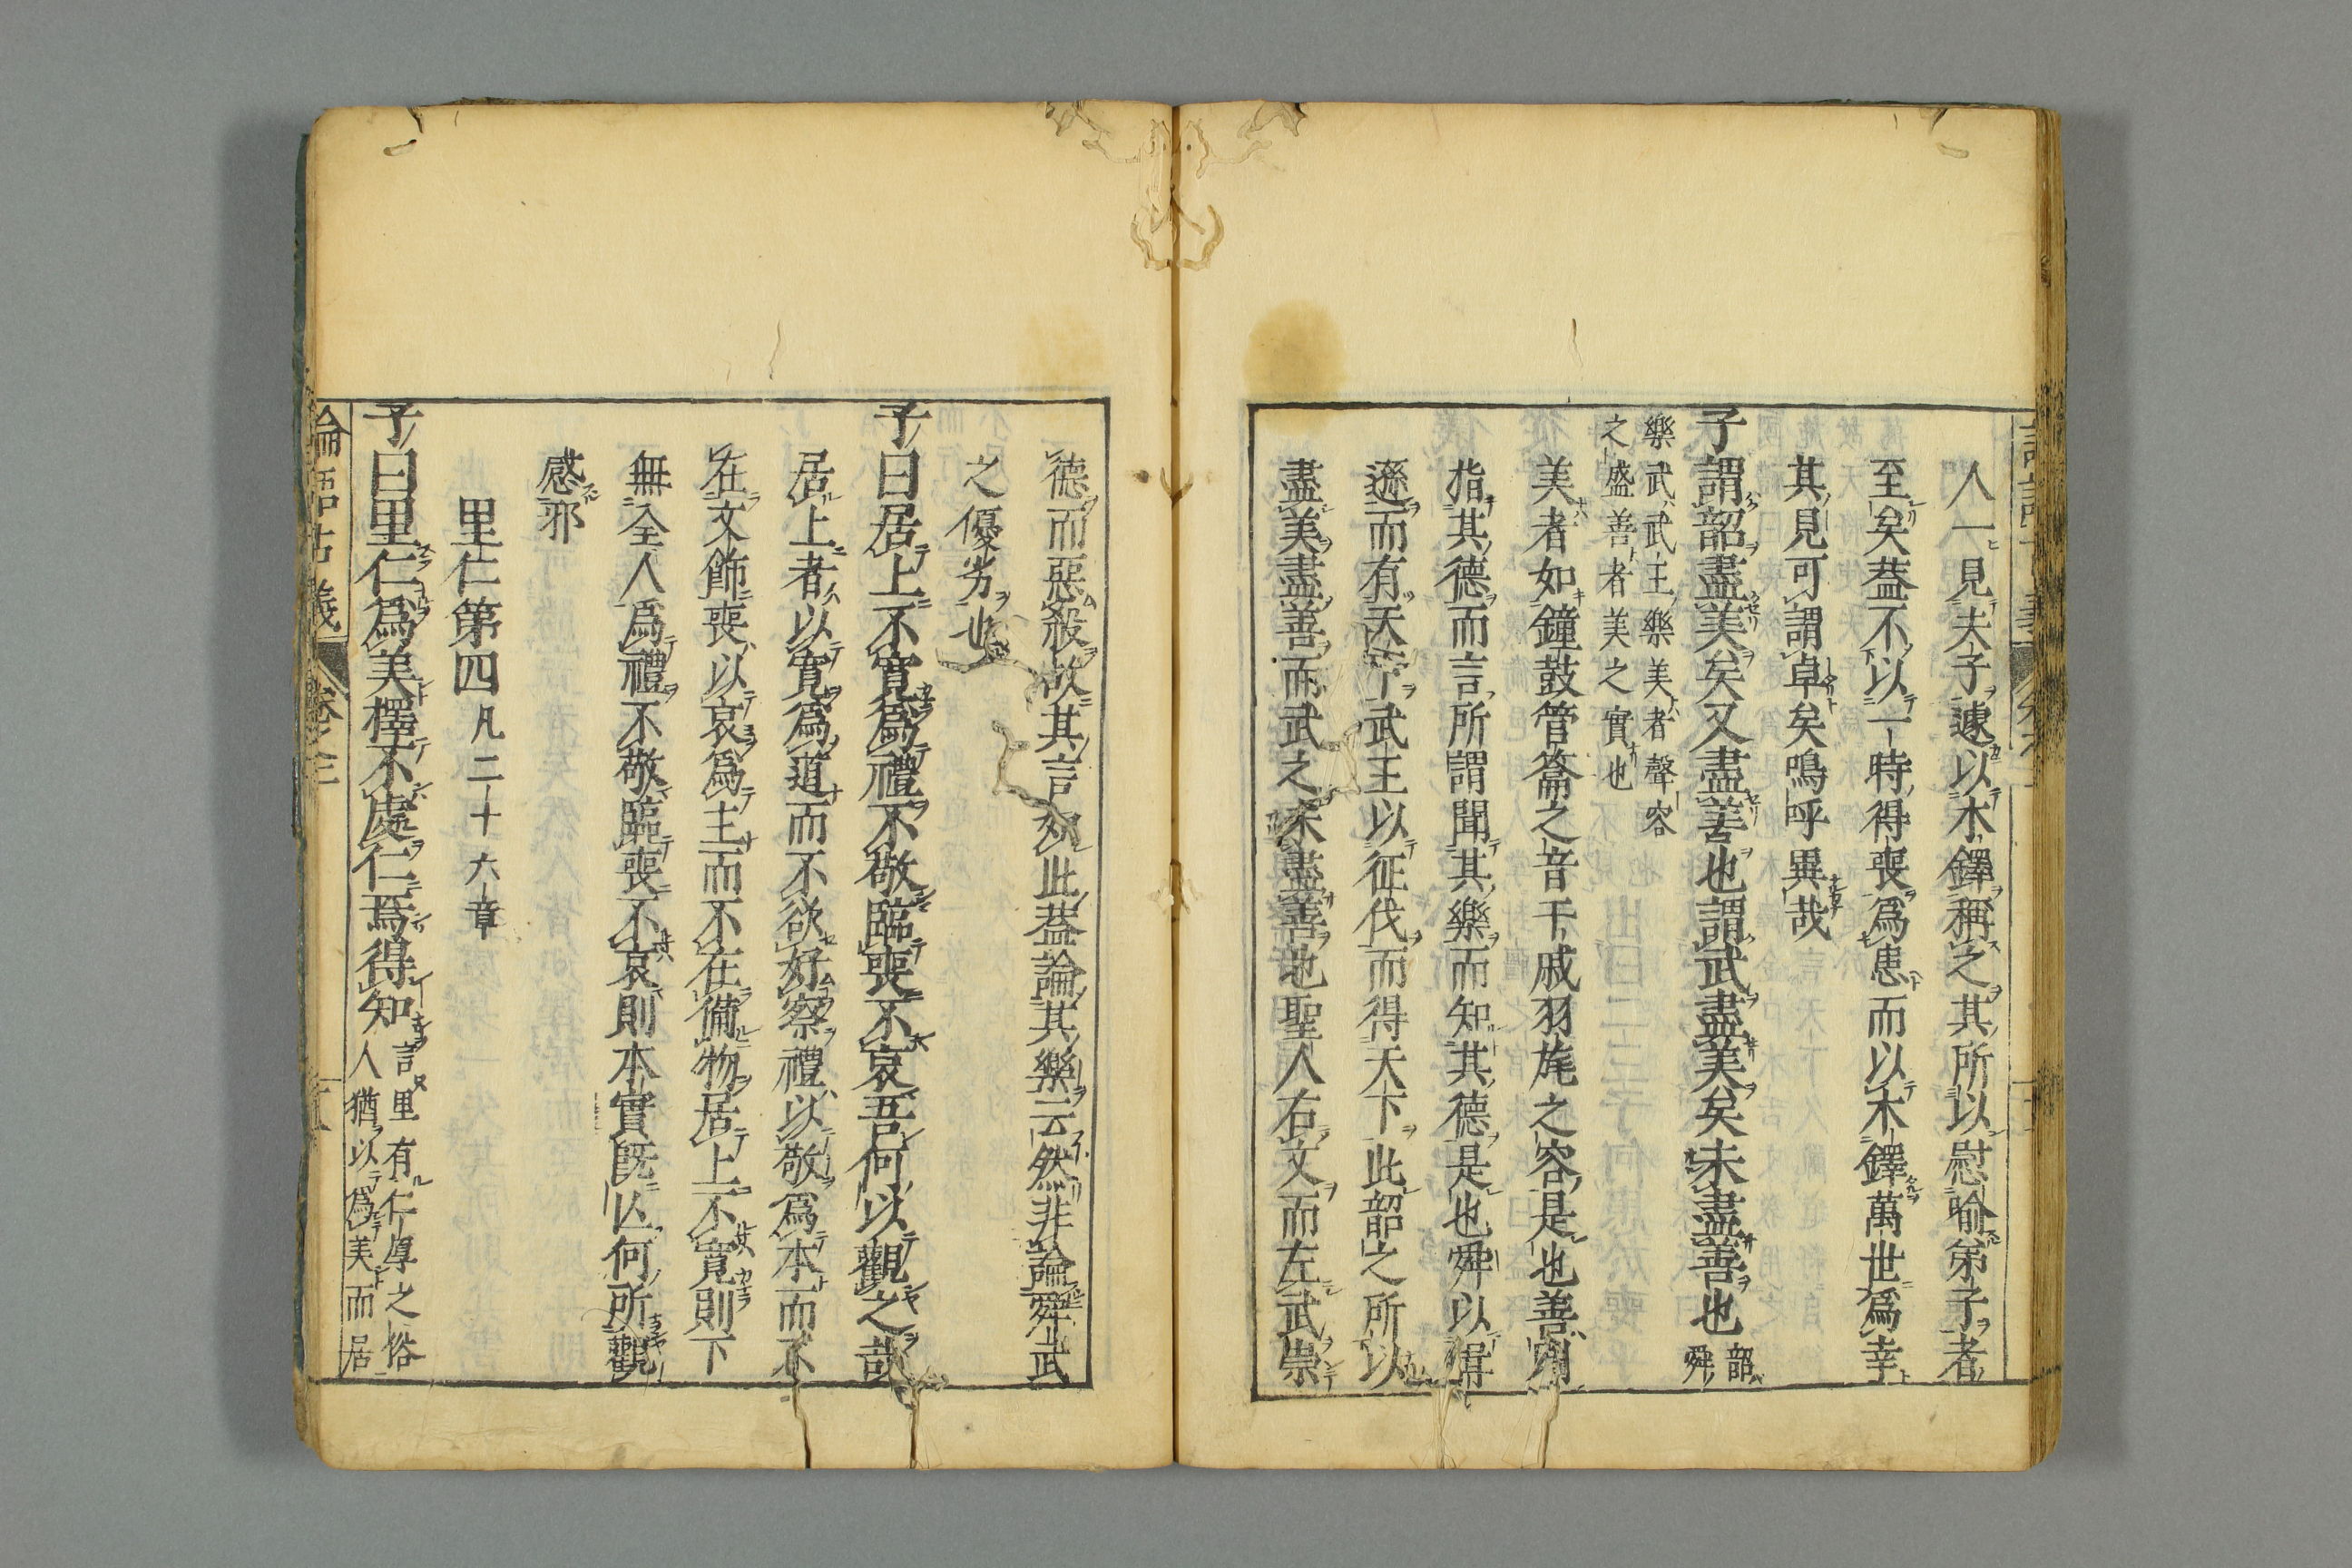 人一見夫子遽以木鐸稱之其所以慰喻弟子者
至矣葢不以一時得喪爲患而以木鐸萬世爲幸
其見可謂卓矣嗚呼異哉
子謂韶盡美矣又盡善也謂武盡美矣未盡善也韶舜
樂武武王樂美者聲容
之盛善者美之實也
美者如鐘鼓管籥之音干戚羽旄之容是也善則
指其德而言所謂聞其樂而知其德是也舜以揖
遜而有天下武王以征伐而得天下此韶之所以
盡美盡善而武之未盡善也聖人右文而左武崇
德而惡殺故其言如此葢論其樂云然非論舜武
之優劣也
子曰居上不寬爲禮不敬臨喪不哀吾何以觀之哉
居上者以寬爲道而不欲好察禮以敬爲本而不
在文飾喪以哀爲主而不在備物居上不寬則下
無全人爲禮不敬臨喪不哀則本實旣亾何所觀
感邪
里仁第四凡二十六章
子曰里仁爲美擇不處仁焉得知言里有仁厚之俗
人猶以爲美而居
論語古義
卷之二